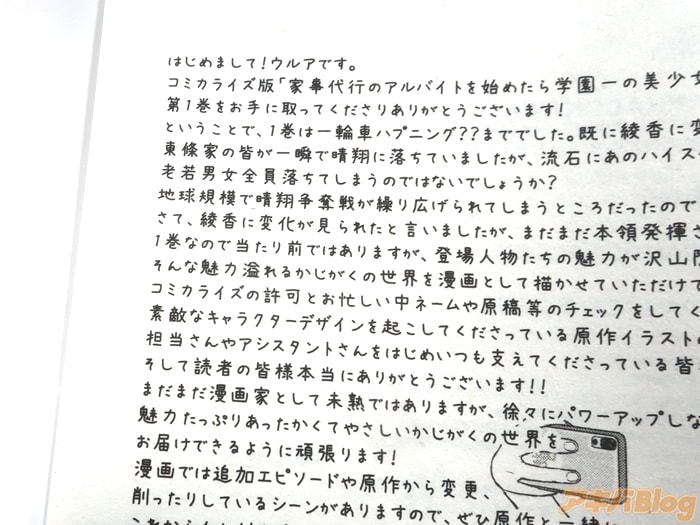 はじめまして!ウルアです。
コミカライズ版「家事代行のアルバイトを始めたら学園一の美少女
第1巻をお手に取ってくださりありがとうございます!
ということで、1巻は一輪車ハプニング??まででした。既に綾香に変
東條家の皆が一瞬で晴翔に落ちていましたが、流石にあのハイス
老若男女全員落ちてしまうのではないでしょうか?
地球規模で晴翔争奪戦が繰り広げられてしまうところだったので
さて、綾香に変化が見られたと言いましたが、まだまだ本領発揮さ
1巻なので当たり前ではありますが、登場人物たちの魅力が沢山
そんな魅力溢れるかじがくの世界を漫画として描かせていただけて
コミカライズの許可とお忙しい中ネームや原稿等のチェックをしてく
素敵なキャラクターデザインを起こしてくださっている原作イラストの
担当さんやアシスタントさんをはじめいつも支えてくださっている皆
そして読者の皆様本当にありがとうございます!!
まだまだ漫画家として未熟ではありますが、徐々にパワーアップしな
魅力たっぷりあったかくてやさしいかじがくの世界を
お届けできるように頑張ります!
漫画では追加エピソードや原作から変更、
削ったりしているシーンがありますので、ぜひ原作と一緒に
アキバBlog